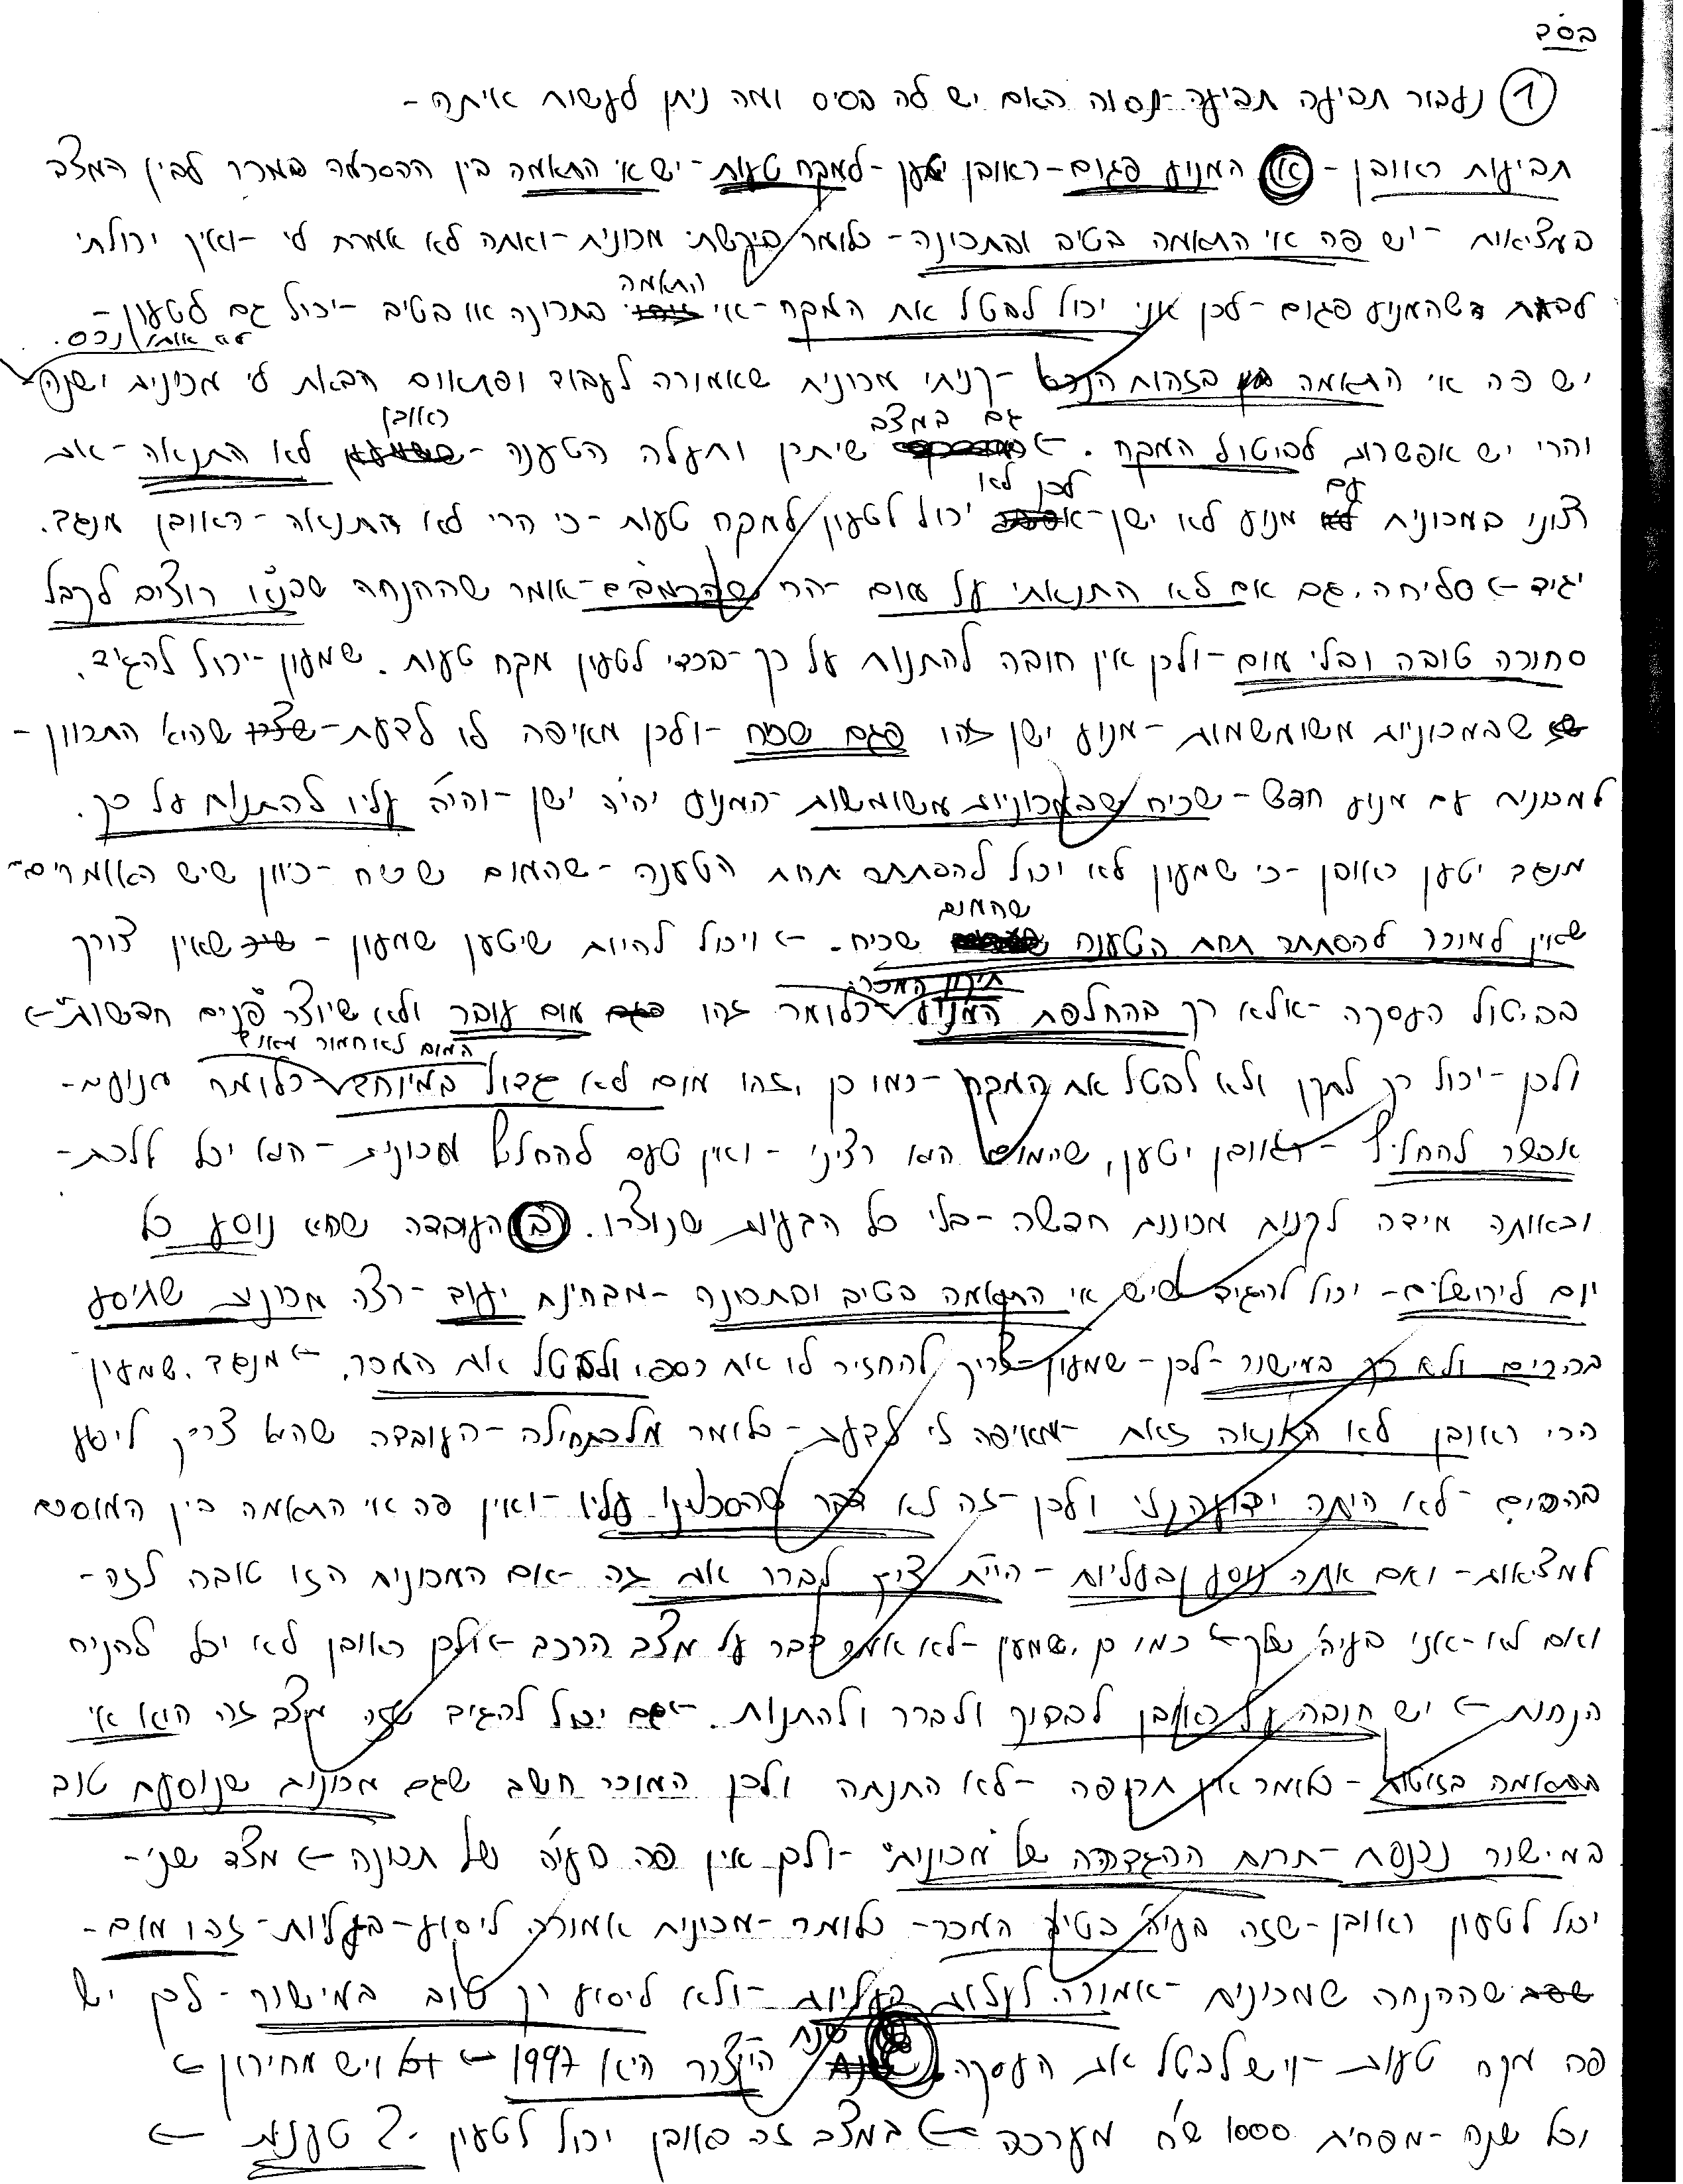 בס"ד
① נעבור תביעה תביעה - נסוה האם יש לה בסיס ומה ניתן לעשות איתה -
תביעות ראובן - א) המנוע פגום - ראובן יטען - למקח טעות - יש אי התאמה בין ההסכמה במכר לבין המצב
במציאות - יש פה אי התאמה בטיב ובתכונה - כלומר ביקשתי מכונית - ואתה לא אמרת לי - ואיך יכולתי
התאמה
לדעת שהמנוע פגום - לכן אני יכול לבטל את המקח - אי בתכונה או בטיב - יכול גם לטעון -
לא אותו נכס.
יש פה אי התאמה בזהות הנכס - קניתי מכונית שאמורה לעבוד ופתאום הבאת לי מכונית ישנה
גם במצב ראובן
והרי יש אפשרות לביטול המקח. ← שיתכן ותעלה הטענה - לא התנאה - אם
עם לכן לא
רצוני במכונית מנוע לא ישן - יכול לטעון למקח טעות - כי הרי לא התנאה - ראובן מנגד.
יגיד ← סליחה, גם אם לא התנאתי על מום - הרי שהרמב"ם - אומר שההנחה שבנ"א רוצים לקבל
סחורה טובה ובלי מום - ולכן אין חובה להתנות על כך - בכדי לטעון מקח טעות. שמעון - יכול להגיד,
שבמכוניות משומשות - מנוע ישן זהו פגם שכיח - ולכן מאיפה לו לדעת - שהיא התכוון -
למכונית עם מנוע חדש - שכיח שבמכוניות משומשות - המנוע יהיה ישן - והיה עליו להתנות על כך.
מנגד יטען ראובן - כי שמעון לא יכול להסתתר תחת הטענה - שהמום שכיח - כיוון שיש האומרים -
שהמום
שאין למוכר להסתתר תחת הטענה שכיח. ← ויכול להיות שיטען שמעון - שאין צורך
תיקון המכר
בביטול העסקה - אלא רק בהחלפת המנוע - כלומר זהו מום עובר ולא שיוצר "פנים חדשות" ←
המום לא חמור מאוד
ולכן - יכול רק לתקן ולא לבטל את המקח - כמו כן, זהו מום לא גדול במיוחד - כלומר מנועים -
אפשר להחליף - ראובן יטען, שהמום הוא רציני - ואין טעם להחליף מכונית - הוא יכל ללכת -
ובאותה מידה לקנות מכונית חדשה - בלי כל הבעיות שנוצרו. ב) העובדה שהוא נוסע כל
יום לירושלים - יכול להגיד שיש אי התאמה בטיב ובתכונה - מבחינת יעוד - רצה מכונית שתיסע
בהרים ולא רק במישור - לכן - שמעון צריך להחזיר לו את כספו, ולבטל את המכר. ← מנגד, שמעון
הרי ראובן לא התנאה זאת - מאיפה לי לדעת - כלומר מלכתחילה - העובדה שהוא צריך ליסע
בהרים - לא היתה ידועה לי ולכן - זה לא דבר שהסכמנו עליו - ואין פה אי התאמה בין המוסכם
למציאות - ואם אתה נוסע ובעליות - היית צריך לברר את זה - אם המכונית הזו טובה לזה -
ואם לא - אני בעיה שלך ← כמו כן, שמעון - לא אמר דבר על מצב הרכב - ולכן ראובן לא יכל להניח
הנחות ← יש חובה על ראובן לבדוק ולברר ולהתנות. ← גם יכול להגיד שזה מצב זה הוא אי
התאמה בזהות - כלומר אין תקיפה - לא התנתה ולכן המוכר חשב שגם מכונית שנוסעת טוב
במישור נכנסת - תחת ההגדרה של "מכונית" - ולכן אין פה בעיה של תכונה ← מצד שני -
יכול לטעון ראובן - שזה בעיה בטיב המכר - כלומר - מכונית אמורה ליסוע - בעליות - זהו מום -
שההנחה שמכונית - אמורה לעלות בעליות - ולא ליסוע רק טוב במישור - לכן יש
שנת
פה מקח טעות - ויש לבטל את העסקה. הייצור היא 1997 ← ויש מחירון ←
וכל שנה - מפחית 1000 ש"ח מערכה ← במצב זה ראובן יכול לטעון 2 טענות ←